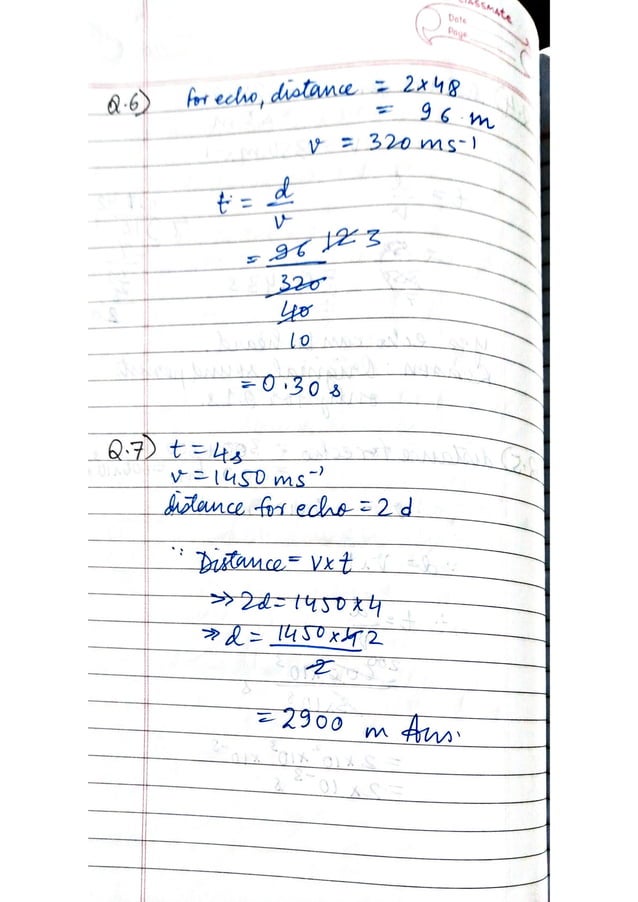 classmate
Date
Page
Q.6) For echo, distance = 2×48
= 96 m
v = 320 ms⁻¹
t = d/v
= 96 12 3
320
40
10
= 0.30 s
Q.7) t = 4s
v = 1450 ms⁻¹
distance for echo = 2d
∵ Distance = v×t
⇒ 2d = 1450×4
⇒ d = 1450×4 2
2
= 2900 m Ans.